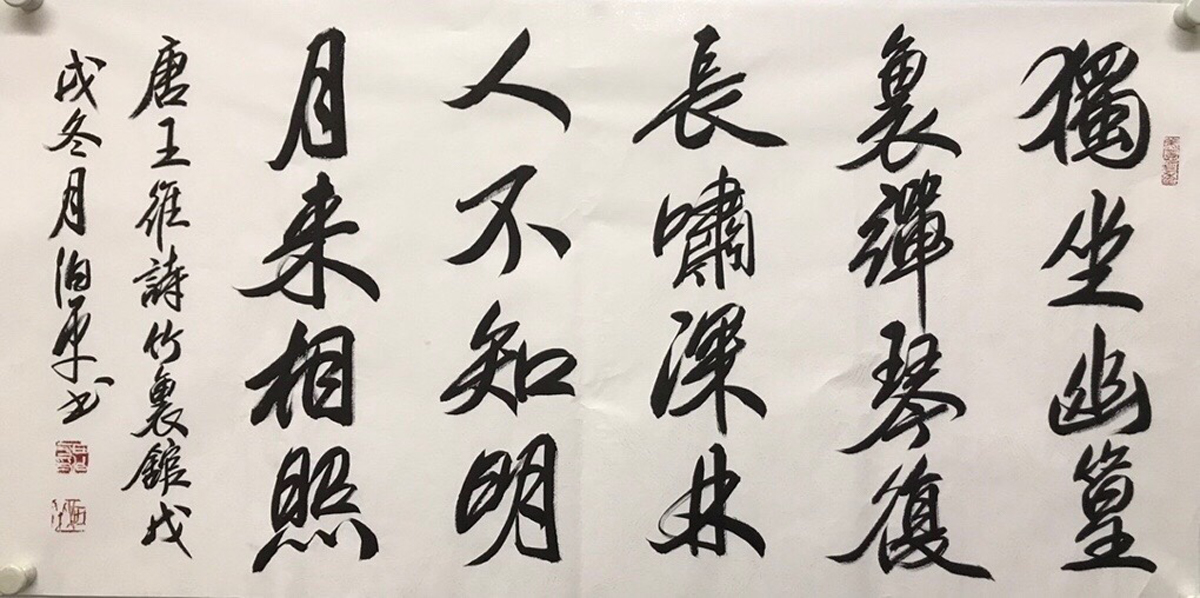 獨坐幽篁
裏彈琴復
長嘯深林
人不知明
月来相照
唐王維詩竹裏館戊
戌冬月泊平书